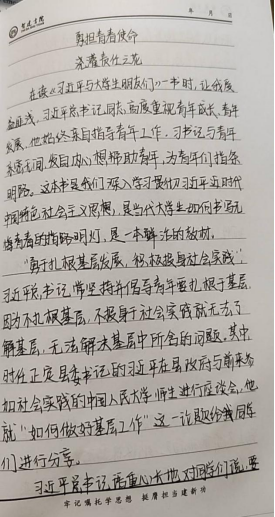 年 月 日
勇担青春使命
浇灌责任之花
在读《习近平与大学生朋友们》一书时,让我感
习近平总书记同志高度重视青年成长、青年
发展,他始终亲自指导青年工作,习书记与青年
亲密无间,发自内心想帮助青年,为青年们指条
明路。这本书是我们深入学习贯彻习近平新时代
中国特色社会主义思想,是当代大学生如何书写无
悔青春的指路明灯,是一本鲜活的教材。
“勇于扎根基层发展,积极投身社会实践”,
习近平总书记常坚持并倡导青年要扎根于基层,
因为不扎根基层,不投身于社会实践就无法了
解基层,无法解决基层中所含的问题,其中
时任正定县委书记的习近平在县政府与前来参
加社会实践的中国人民大学师生进行座谈会,他
就“如何做好基层工作”这一论题给我同学
们进行分享。
习近平总书记语重心长地对同学们说,要
牢记嘱托学思想 挺膺担当建新功